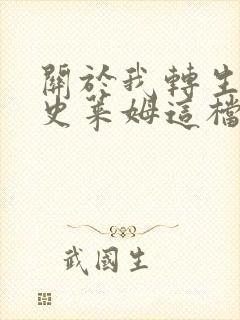 關於我轉生
史萊姆這檔
武國生